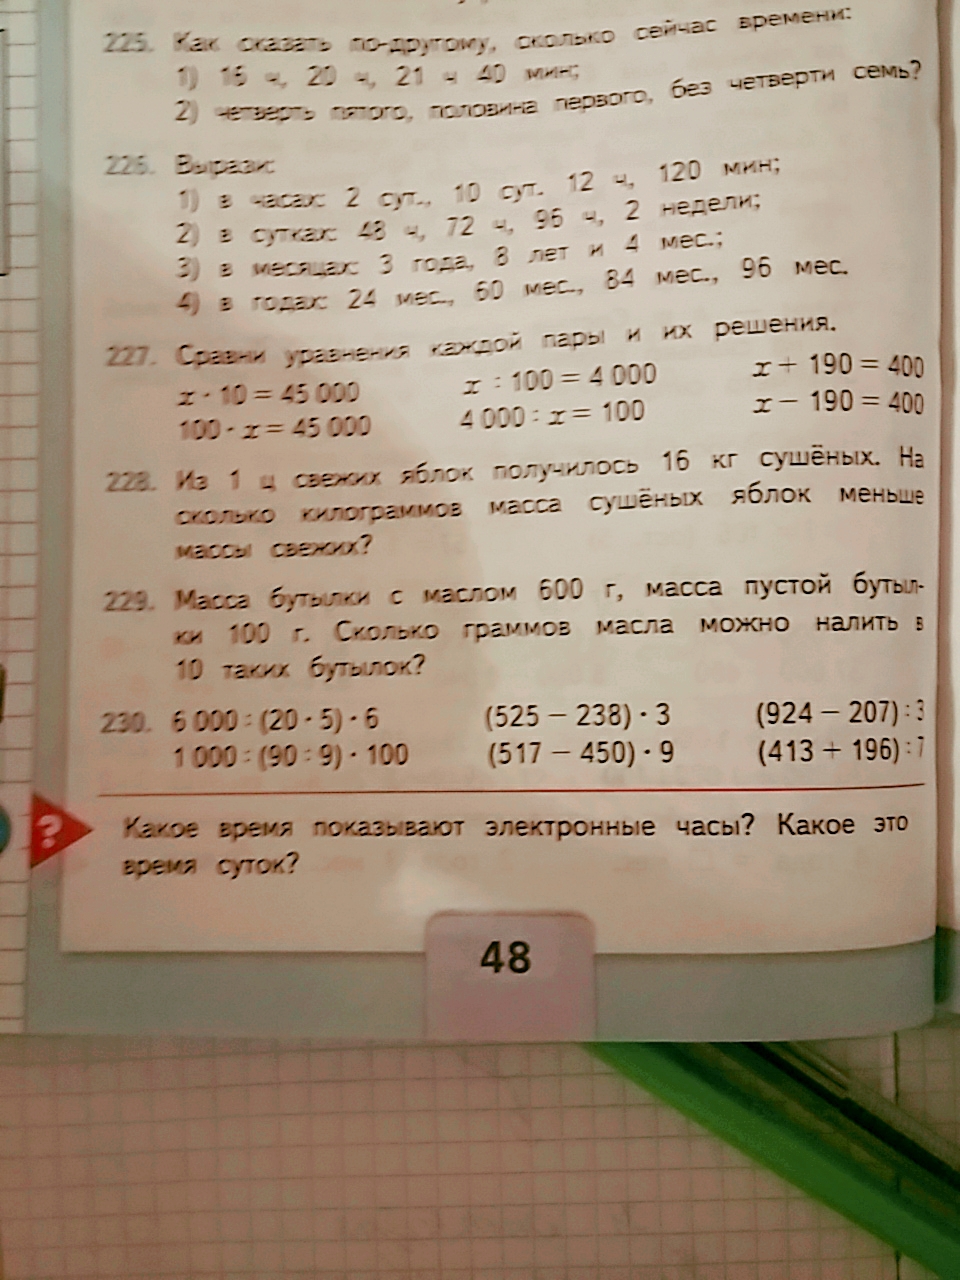 225. Как сказать по-другому, сколько сейчас времени:
1) 16 ч, 20 ч, 21 ч 40 мин;
2) четверть пятого, половина первого, без четверти семь?
226. Вырази:
1) в часах: 2 сут., 10 сут. 12 ч, 120 мин;
2) в сутках: 48 ч, 72 ч, 96 ч, 2 недели;
3) в месяцах: 3 года, 8 лет и 4 мес.;
4) в годах: 24 мес., 60 мес., 84 мес., 96 мес.
227. Сравни уравнения каждой пары и их решения.
x · 10 = 45 000 x : 100 = 4 000 x + 190 = 400
100 · x = 45 000 4 000 : x = 100 x − 190 = 400
228. Из 1 ц свежих яблок получилось 16 кг сушёных. На
сколько килограммов масса сушёных яблок меньше
массы свежих?
229. Масса бутылки с маслом 600 г, масса пустой бутыл-
ки 100 г. Сколько граммов масла можно налить в
10 таких бутылок?
230. 6 000 : (20 · 5) · 6 (525 − 238) · 3 (924 − 207) : 3
1 000 : (90 : 9) · 100 (517 − 450) · 9 (413 + 196) : 7
? Какое время показывают электронные часы? Какое это
время суток?
48